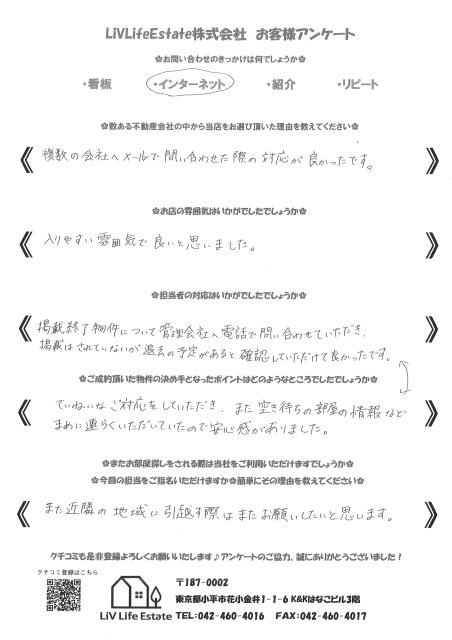 LiVLifeEstate株式会社 お客様アンケート
✿お問い合わせのきっかけは何でしょうか✿
・看板 ・インターネット ・紹介 ・リピート
✿数ある不動産会社の中から当店をお選び頂いた理由を教えてください✿
複数の会社へメールで問い合わせた際の対応が良かったです。
✿お店の雰囲気はいかがでしたでしょうか✿
入りやすい雰囲気で良いと思いました。
✿担当者の対応はいかがでしたでしょうか✿
掲載終了物件について管理会社へ電話で問い合わせていただき、
掲載はされていないが退去の予定があると確認していただけて良かったです。
✿ご成約頂いた物件の決め手となったポイントはどのようなところでしたでしょうか✿
ていねいなご対応をしていただき、また空き待ちの部屋の情報など
まめに連らくいただいていたので安心感がありました。
✿またお部屋探しをされる際は当社をご利用いただけますでしょうか✿
✿今回の担当をご指名いただけますか✿簡単にその理由を教えてください✿
また近隣の地域に引越す際はまたお願いしたいと思います。
クチコミも是非登録よろしくお願いいたします♪アンケートのご協力、誠にありがとうございました!
クチコミ登録はこちら
〒187-0002
東京都小平市花小金井1-1-6 K&Kはなこビル3階
LiV Life Estate TEL:042-460-4016 FAX:042-460-4017